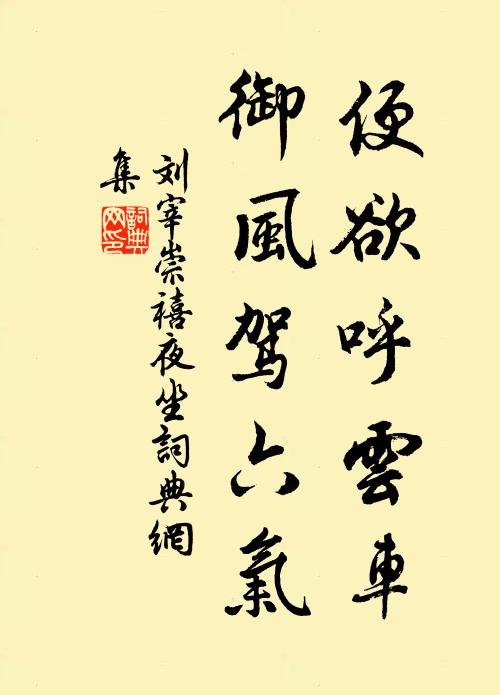 便欲呼雲車
御風駕六氣
刘宰崇禧夜坐詞典網
集
詞典
网印